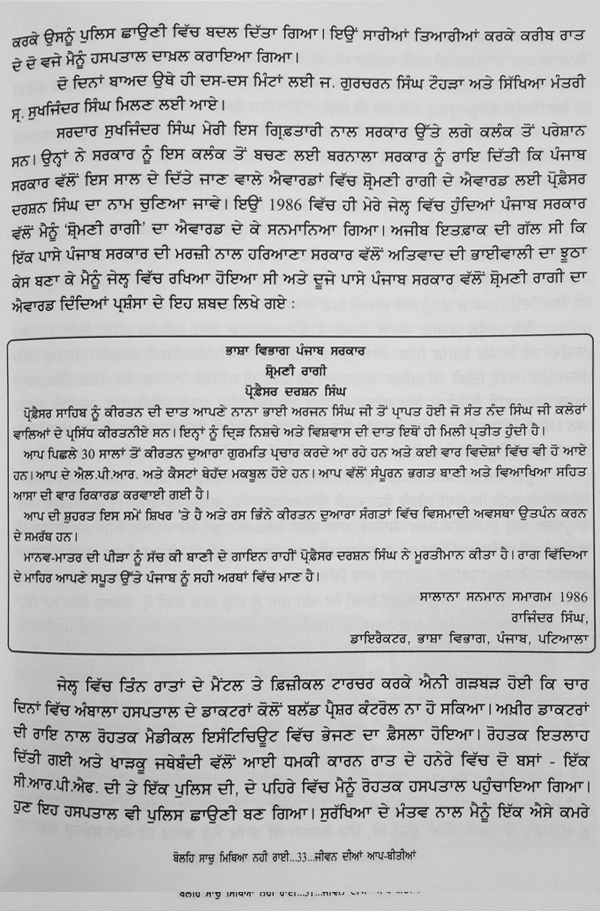 ਕਰਕੇ ਉਸਨੂੰ ਪੁਲਿਸ ਛਾਉਣੀ ਵਿੱਚ ਬਦਲ ਦਿੱਤਾ ਗਿਆ। ਇਉਂ ਸਾਰੀਆਂ ਤਿਆਰੀਆਂ ਕਰਕੇ ਕਰੀਬ ਰਾਤ
ਦੇ ਦੋ ਵਜੇ ਮੈਨੂੰ ਹਸਪਤਾਲ ਦਾਖ਼ਲ ਕਰਾਇਆ ਗਿਆ।
ਦੋ ਦਿਨਾਂ ਬਾਅਦ ਉਥੇ ਹੀ ਦਸ-ਦਸ ਮਿੰਟਾਂ ਲਈ ਜ. ਗੁਰਚਰਨ ਸਿੰਘ ਟੌਹੜਾ ਅਤੇ ਸਿੱਖਿਆ ਮੰਤਰੀ
ਸ੍ਰ. ਸੁਖਜਿੰਦਰ ਸਿੰਘ ਮਿਲਣ ਲਈ ਆਏ।
ਸਰਦਾਰ ਸੁਖਜਿੰਦਰ ਸਿੰਘ ਮੇਰੀ ਇਸ ਗ੍ਰਿਫ਼ਤਾਰੀ ਨਾਲ ਸਰਕਾਰ ਉੱਤੇ ਲਗੇ ਕਲੰਕ ਤੋਂ ਪਰੇਸ਼ਾਨ
ਸਨ। ਉਨ੍ਹਾਂ ਨੇ ਸਰਕਾਰ ਨੂੰ ਇਸ ਕਲੰਕ ਤੋਂ ਬਚਣ ਲਈ ਬਰਨਾਲਾ ਸਰਕਾਰ ਨੂੰ ਰਾਇ ਦਿੱਤੀ ਕਿ ਪੰਜਾਬ
ਸਰਕਾਰ ਵੱਲੋਂ ਇਸ ਸਾਲ ਦੇ ਦਿੱਤੇ ਜਾਣ ਵਾਲੇ ਐਵਾਰਡਾਂ ਵਿੱਚ ਸ਼੍ਰੋਮਣੀ ਰਾਗੀ ਦੇ ਅਵਾਰਡ ਲਈ ਪ੍ਰੋਫ਼ੈਸਰ
ਦਰਸ਼ਨ ਸਿੰਘ ਦਾ ਨਾਮ ਚੁਣਿਆ ਜਾਵੇ। ਇਉਂ 1986 ਵਿਚ ਹੀ ਮੇਰੇ ਜੇਲ੍ਹ ਵਿੱਚ ਹੁੰਦਿਆਂ ਪੰਜਾਬ ਸਰਕਾਰ
ਵੱਲੋਂ ਮੈਨੂੰ 'ਸ਼੍ਰੋਮਣੀ ਰਾਗੀ' ਦਾ ਐਵਾਰਡ ਦੇ ਕੇ ਸਨਮਾਨਿਆ ਗਿਆ। ਅਜੀਬ ਇਤਫ਼ਾਕ ਦੀ ਗੱਲ ਸੀ ਕਿ
ਇੱਕ ਪਾਸੇ ਪੰਜਾਬ ਸਰਕਾਰ ਦੀ ਮਰਜ਼ੀ ਨਾਲ ਹਰਿਆਣਾ ਸਰਕਾਰ ਵੱਲੋਂ ਅਤਿਵਾਦ ਦੀ ਭਾਈਵਾਲੀ ਦਾ ਝੂਠਾ
ਕੇਸ ਬਣਾ ਕੇ ਮੈਨੂੰ ਜੇਲ੍ਹ ਵਿੱਚ ਰਖਿਆ ਹੋਇਆ ਸੀ ਅਤੇ ਦੂਜੇ ਪਾਸੇ ਪੰਜਾਬ ਸਰਕਾਰ ਵੱਲੋਂ ਸ਼੍ਰੋਮਣੀ ਰਾਗੀ ਦਾ
ਐਵਾਰਡ ਦਿੰਦਿਆਂ ਪ੍ਰਸ਼ੰਸਾ ਦੇ ਇਹ ਸ਼ਬਦ ਲਿਖੇ ਗਏ :
ਭਾਸ਼ਾ ਵਿਭਾਗ ਪੰਜਾਬ ਸਰਕਾਰ
ਸ਼੍ਰੋਮਣੀ ਰਾਗੀ
ਪ੍ਰੋਫ਼ੈਸਰ ਦਰਸ਼ਨ ਸਿੰਘ
ਪ੍ਰੋਫ਼ੈਸਰ ਸਾਹਿਬ ਨੂੰ ਕੀਰਤਨ ਦੀ ਦਾਤ ਆਪਣੇ ਨਾਨਾ ਭਾਈ ਅਰਜਨ ਸਿੰਘ ਜੀ ਤੋਂ ਪ੍ਰਾਪਤ ਹੋਈ ਜੋ ਸੰਤ ਨੰਦ ਸਿੰਘ ਜੀ ਕਲੇਰਾਂ
ਵਾਲਿਆਂ ਦੇ ਪ੍ਰਸਿੱਧ ਕੀਰਤਨੀਏ ਸਨ। ਇਨ੍ਹਾਂ ਨੂੰ ਦ੍ਰਿੜ ਨਿਸ਼ਚੇ ਅਤੇ ਵਿਸ਼ਵਾਸ ਦੀ ਦਾਤ ਇਥੋਂ ਹੀ ਮਿਲੀ ਪ੍ਰਤੀਤ ਹੁੰਦੀ ਹੈ।
ਆਪ ਪਿਛਲੇ 30 ਸਾਲਾਂ ਤੋਂ ਕੀਰਤਨ ਦੁਆਰਾ ਗੁਰਮਤਿ ਪ੍ਰਚਾਰ ਕਰਦੇ ਆ ਰਹੇ ਹਨ ਅਤੇ ਕਈ ਵਾਰ ਵਿਦੇਸ਼ਾਂ ਵਿੱਚ ਵੀ ਹੋ ਆਏ
ਹਨ। ਆਪ ਦੇ ਐਲ.ਪੀ.ਆਰ. ਅਤੇ ਕੈਸਟਾਂ ਬੇਹੱਦ ਮਕਬੂਲ ਹੋਏ ਹਨ। ਆਪ ਵੱਲੋਂ ਸੰਪੂਰਨ ਭਗਤ ਬਾਣੀ ਅਤੇ ਵਿਆਖਿਆ ਸਹਿਤ
ਆਸਾ ਦੀ ਵਾਰ ਰਿਕਾਰਡ ਕਰਵਾਈ ਗਈ ਹੈ।
ਆਪ ਦੀ ਸ਼ੁਹਰਤ ਇਸ ਸਮੇਂ ਸ਼ਿਖਰ 'ਤੇ ਹੈ ਅਤੇ ਰਸ ਭਿੰਨੇ ਕੀਰਤਨ ਦੁਆਰਾ ਸੰਗਤਾਂ ਵਿੱਚ ਵਿਸਮਾਦੀ ਅਵਸਥਾ ਉਤਪੰਨ ਕਰਨ
ਦੇ ਸਮਰੱਥ ਹਨ।
ਮਾਨਵ-ਮਾਤਰ ਦੀ ਪੀੜਾ ਨੂੰ ਸੱਚ ਕੀ ਬਾਣੀ ਦੇ ਗਾਇਨ ਰਾਹੀਂ ਪ੍ਰੋਫ਼ੈਸਰ ਦਰਸ਼ਨ ਸਿੰਘ ਨੇ ਮੂਰਤੀਮਾਨ ਕੀਤਾ ਹੈ। ਰਾਗ ਵਿੱਦਿਆ
ਦੇ ਮਾਹਿਰ ਆਪਣੇ ਸਪੂਤ ਉੱਤੇ ਪੰਜਾਬ ਨੂੰ ਸਹੀ ਅਰਥਾਂ ਵਿੱਚ ਮਾਣ ਹੈ।
ਸਾਲਾਨਾ ਸਨਮਾਨ ਸਮਾਗਮ 1986
ਰਾਜਿੰਦਰ ਸਿੰਘ,
ਡਾਇਰੈਕਟਰ, ਭਾਸ਼ਾ ਵਿਭਾਗ, ਪੰਜਾਬ, ਪਟਿਆਲਾ
ਜੇਲ੍ਹ ਵਿੱਚ ਤਿੰਨ ਰਾਤਾਂ ਦੇ ਮੈਂਟਲ ਤੇ ਫ਼ਿਜ਼ੀਕਲ ਟਾਰਚਰ ਕਰਕੇ ਐਨੀ ਗੜਬੜ ਹੋਈ ਕਿ ਚਾਰ
ਦਿਨਾਂ ਵਿੱਚ ਅੰਬਾਲਾ ਹਸਪਤਾਲ ਦੇ ਡਾਕਟਰਾਂ ਕੋਲੋਂ ਬਲੱਡ ਪ੍ਰੈਸ਼ਰ ਕੰਟਰੋਲ ਨਾ ਹੋ ਸਕਿਆ। ਅਖ਼ੀਰ ਡਾਕਟਰਾਂ
ਦੀ ਰਾਇ ਨਾਲ ਰੋਹਤਕ ਮੈਡੀਕਲ ਇਸੀਟਿਚਿਊਟ ਵਿੱਚ ਭੇਜਣ ਦਾ ਫ਼ੈਸਲਾ ਹੋਇਆ। ਰੋਹਤਕ ਇਤਲਾਹ
ਦਿੱਤੀ ਗਈ ਅਤੇ ਖਾੜਕੂ ਜਥੇਬੰਦੀ ਵੱਲੋਂ ਆਈ ਧਮਕੀ ਕਾਰਨ ਰਾਤ ਦੇ ਹਨੇਰੇ ਵਿੱਚ ਦੋ ਬਸਾਂ - ਇੱਕ
ਸੀ.ਆਰ.ਪੀ.ਐਫ. ਦੀ ਤੇ ਇੱਕ ਪੁਲਿਸ ਦੀ, ਦੇ ਪਹਿਰੇ ਵਿੱਚ ਮੈਨੂੰ ਰੋਹਤਕ ਹਸਪਤਾਲ ਪਹੁੰਚਾਇਆ ਗਿਆ।
ਹੁਣ ਇਹ ਹਸਪਤਾਲ ਵੀ ਪੁਲਿਸ ਛਾਉਣੀ ਬਣ ਗਿਆ। ਸੁਰੱਖਿਆ ਦੇ ਮੰਤਵ ਨਾਲ ਮੈਨੂੰ ਇੱਕ ਐਸੇ ਕਮਰੇ
ਬੋਲਹਿ ਸਾਚੁ ਮਿਥਿਆ ਨਹੀ ਰਾਈ...33...ਜੀਵਨ ਦੀਆਂ ਆਪ-ਬੀਤੀਆਂ